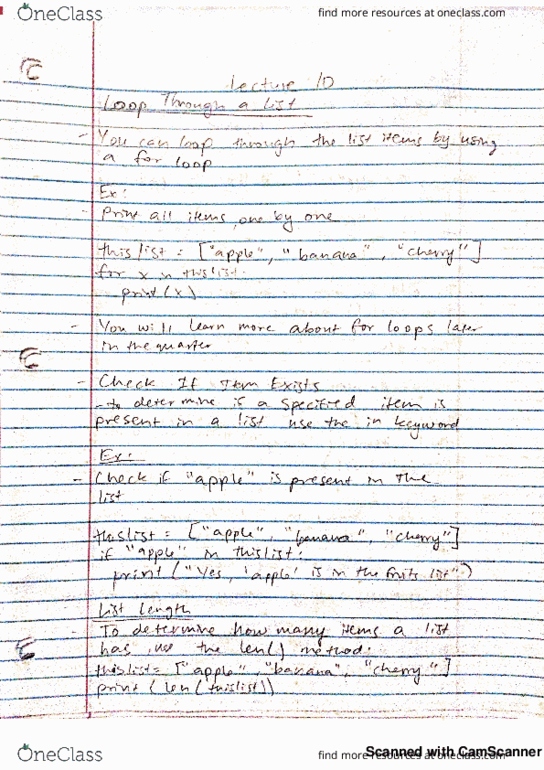 OneClass
find more resources at oneclass.com
Lecture 10
Loop Through a List
- You can loop through the list items by using
a for loop
Ex:
- Print all items, one by one
thislist = ["apple", "banana", "cherry"]
for x in thislist:
print(x)
- You will learn more about for loops later
in the quarter
- Check If Item Exists
- to determine if a specified item is
present in a list use the in keyword
Ex:
- Check if "apple" is present in the
list
thislist = ["apple", "banana", "cherry"]
if "apple" in thislist:
print("Yes, 'apple' is in the fruits list")
List Length
- To determine how many items a list
has, use the len() method:
thislist = ["apple", "banana", "cherry"]
print(len(thislist))
OneClass
find more resources at oneclass.com
Scanned with CamScanner